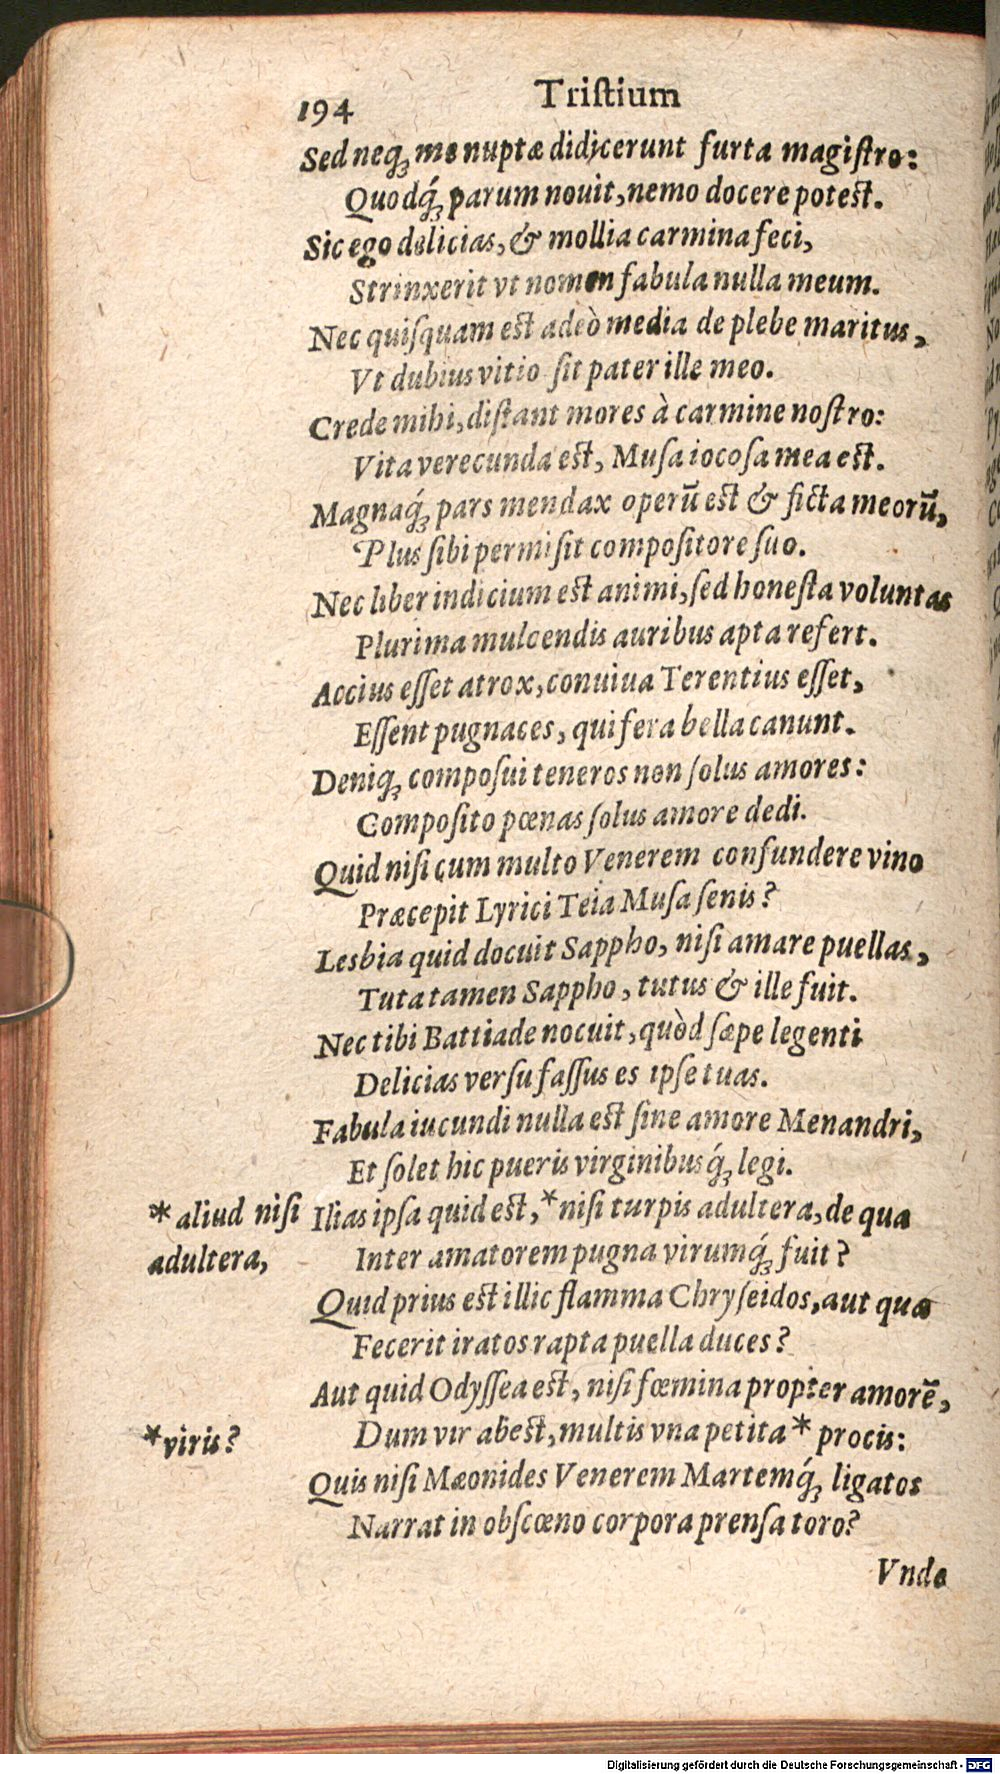 194 Tristium
Sed neq; me nuptæ didicerunt furta magistro:
Quodq́; parum nouit, nemo docere potest.
Sic ego delicias, & mollia carmina feci,
Strinxerit vt nomen fabula nulla meum.
Nec quiſquam est adeò media de plebe maritus,
Vt dubius vitio ſit pater ille meo.
Crede mihi, diſtant mores à carmine noſtro:
Vita verecunda est, Muſa iocoſa mea est.
Magnaq́; pars mendax operũ est & ficta meorũ,
Plus ſibi permiſit compoſitore ſuo.
Nec liber indicium est animi, ſed honeſta voluntas
Plurima mulcendis auribus apta refert.
Accius eſſet atrox, conuiua Terentius eſſet,
Eſſent pugnaces, qui fera bella canunt.
Deniq; compoſui teneros non ſolus amores:
Compoſito pœnas ſolus amore dedi.
Quid niſi cum multo Venerem confundere vino
Præcepit Lyrici Teia Muſa ſenis?
Lesbia quid docuit Sappho, niſi amare puellas,
Tuta tamen Sappho, tutus & ille fuit.
Nec tibi Battiade nocuit, quòd ſæpe legenti
Delicias verſu faſſus es ipſe tuas.
Fabula iucundi nulla est ſine amore Menandri,
Et ſolet hic pueris virginibusq́; legi.
* aliud niſi adultera,
Ilias ipſa quid est, * niſi turpis adultera, de qua
Inter amatorem pugna virumq́; fuit?
Quid prius est illic flamma Chryſeidos, aut qua
Fecerit iratos rapta puella duces?
Aut quid Odyſſea est, niſi fœmina propter amorẽ,
* viris?
Dum vir abest, multis vna petita * procis:
Quis niſi Mæonides Venerem Martemq́; ligatos
Narrat in obſcœno corpora prenſa toro?
Vnde
Digitalisierung gefördert durch die Deutsche Forschungsgemeinschaft - DFG